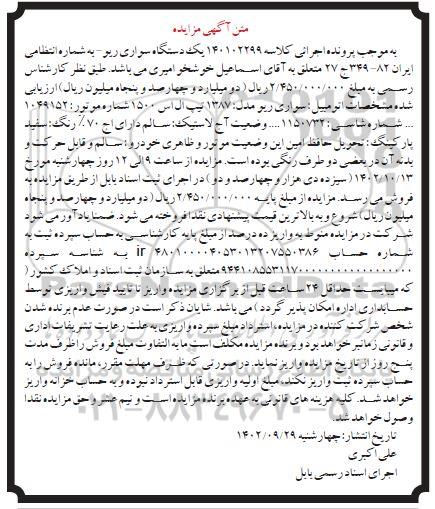 متن آگهی مزایده
به موجب پرونده اجرائی کلاسه ۱۴۰۱۰۲۲۹۹ یک دستگاه سواری ریو - به شماره انتظامی
ایران ۸۲- ۳۴۹ج ۲۷ متعلق به آقای اسماعیل خوشخو امیری می باشد. طبق نظر کارشناس
رسمی به مبلغ ۲/۴۵۰/۰۰۰/۰۰۰ ریال ( دو میلیارد و چهارصد و پنجاه میلیون ریال) ارزیابی
شده مشخصات اتومبیل : سواری ریو مدل: ۱۳۸۷ تیپ ال اس ۱۵۰۰ شماره موتور : ۱۰۴۹۱۵۲
... شماره شاسی : ۱۱۵۰۷۳۲ .... وضعیت آج لاستیک: سالم دارای آج ۷۰٪ رنگ : سفید ...
پارکینگ : تحویل حافظ امین این وضعیت موتور و ظاهری خودرو : سالم و قابل حرکت و
بدنه آن در بعضی دو طرف رنگی بوده است. مزایده از ساعت ۹ الی ۱۲ روز چهارشنبه مورخ
۱۴۰۲/۱۰/۱۳ ( سیزده دی هزار و چهارصد و دو ) در اجرای ثبت اسناد بابل از طریق مزایده به
فروش می رسد. مزایده از مبلغ پایه ۲/۴۵۰/۰۰۰/۰۰۰ ریال (دو میلیارد و چهارصد و پنجاه
میلیون ریال) شروع و به بالاترین قیمت پیشنهادی نقدا فروخته می شود. ضمنا یادآور می شود
شرکت در مزایده منوط به واریز ده درصد از مبلغ پایه کارشناسی به حساب سپرده ثبت به
شماره حساب ir ۴۸۰۱۰۰۰۰۴۰۵۳۰۱۳۲۰۷۵۵۰۳۸۶ به شناسه سپرده
متعلق به سازمان ثبت اسناد و املاک کشور (
که میبایست حداقل ۲۴ ساعت قبل از برگزاری مزایده واریز تا تایید فیش واریزی توسط
حسابداری اداره امکان پذیر گردد ) می باشد. شایان ذکر است در صورت عدم برنده شدن
شخص شرکت کننده در مزایده، استرداد مبلغ سپرده واریزی به علت رعایت تشریفات اداری
و قانونی زمانبر خواهد بود و برنده مزایده مکلف است مابه التفاوت مبلغ فروش را ظرف مدت
پنج روز از تاریخ مزایده واریز نماید. در صورتی که ظرف مهلت مقرر، مانده فروش را به
حساب سپرده ثبت واریز نکند، مبلغ اولیه واریزی قابل استرداد نبوده و به حساب خزانه واریز
خواهد شد. کلیه هزینه های قانونی به عهده برنده مزایده است و نیم عشر و حق مزایده نقدا
وصول خواهد شد.
تاریخ انتشار: چهارشنبه ۱۴۰۲/۰۹/۲۹
علی اکبری
اجرای اسناد رسمی بابل
۰۲۱-۸۸۳۴۹۶۷۰-۵